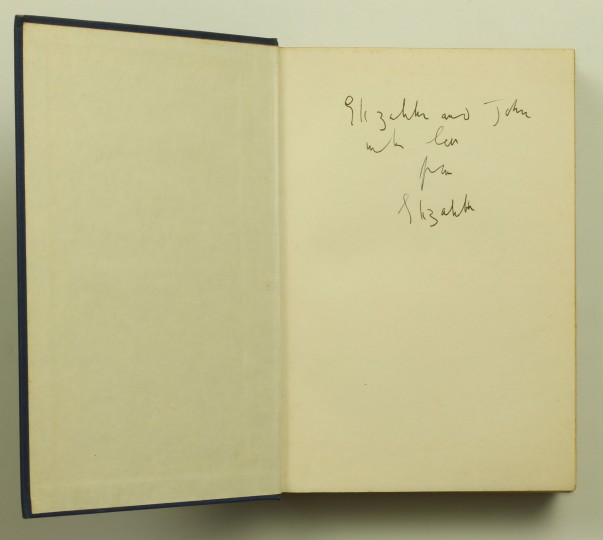 Elizabeth and John
with love
from
Elizabeth